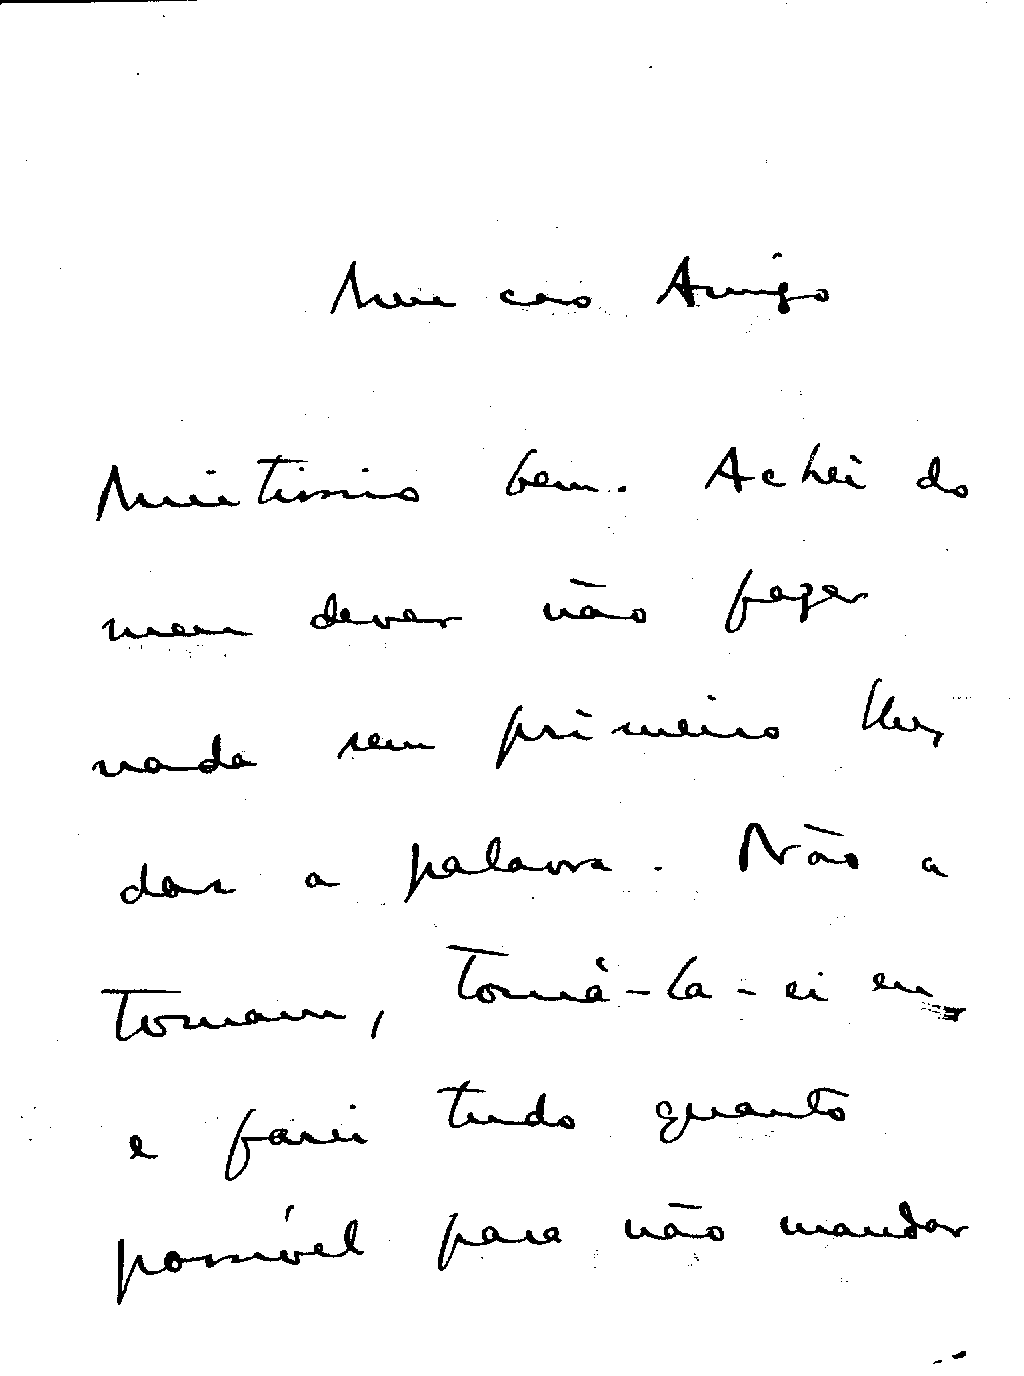 Meu caro Amigo
Muitissimo bem. Achei do
meu dever não fazer
nada sem primeiro lhes
dar a palavra. Não a
tomam, tomá-la-ei eu
e farei tudo quanto
possível para não mandar